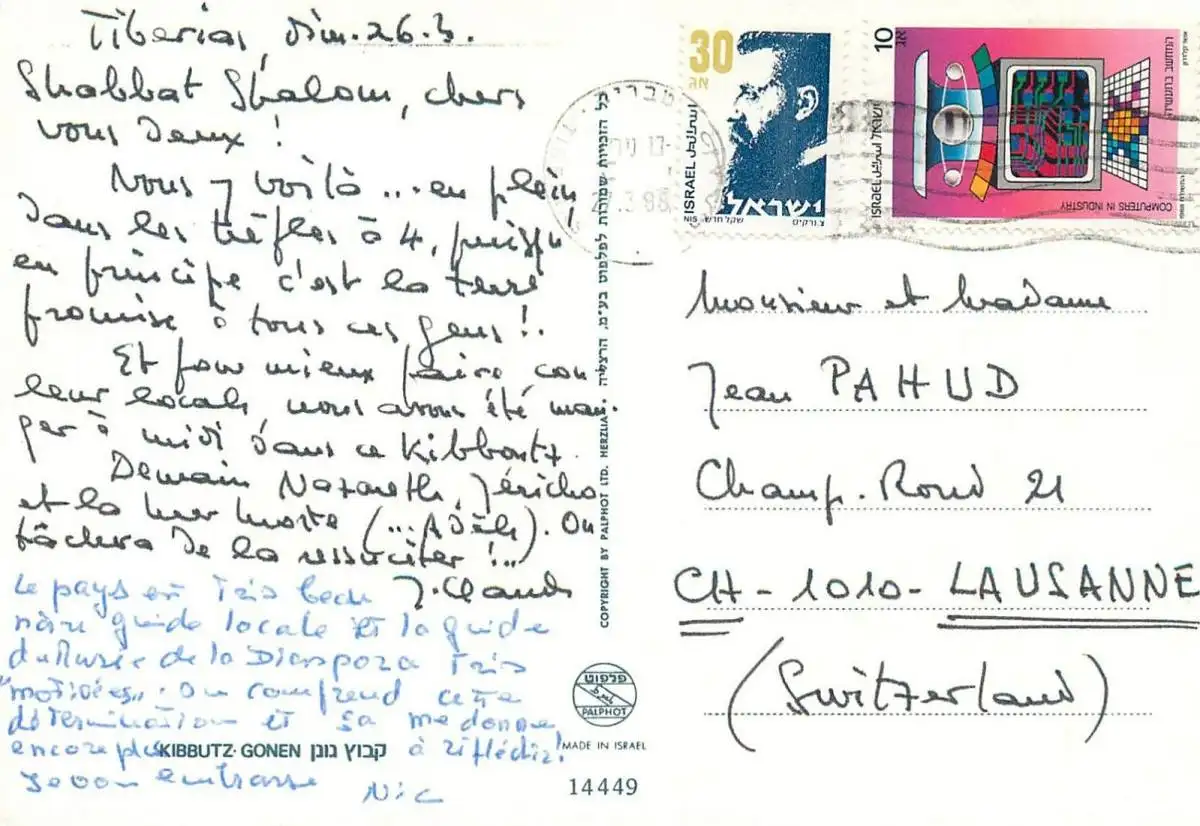 Tiberias, dim. 26.3.
Shabbat Shalom, chers
vous deux !
Nous y voilà ... en plein
dans les trèfles à 4, puisqu'
en principe c'est la terre
promise à tous ces gens !.
Et pour mieux faire cou
leur locale, nous avons été man-
ger à midi dans ce Kibboutz.
Demain Nazareth, Jéricho
et la mer morte (... ). On
tâchera de la ressusciter !..)
J. Claude
Le pays est très beau
notre guide locale et la guide
du Musée de la Diaspora très
"motivées". On comprend cette
détermination et ça me donne
encore plus à réfléchir!
Je vous embrasse
Nic
KIBBUTZ·GONEN קבוץ גונן
COPYRIGHT BY PALPHOT LTD. HERZLIA • כל הזכויות שמורות לפלפוט בע"מ, הרצליה
פלפוט
PALPHOT
MADE IN ISRAEL
14449
30
אג
ISRAEL اسرائيل
ישראל
NIS שקל חדש
צ. נרקיס
10
אג
ISRAEL اسرائيل ישראל
COMPUTERS IN INDUSTRY
טבריה
17-
3.88
Monsieur et Madame
Jean PAHUD
Champ-Rond 21
CH - 1010 - LAUSANNE
(Switzerland)